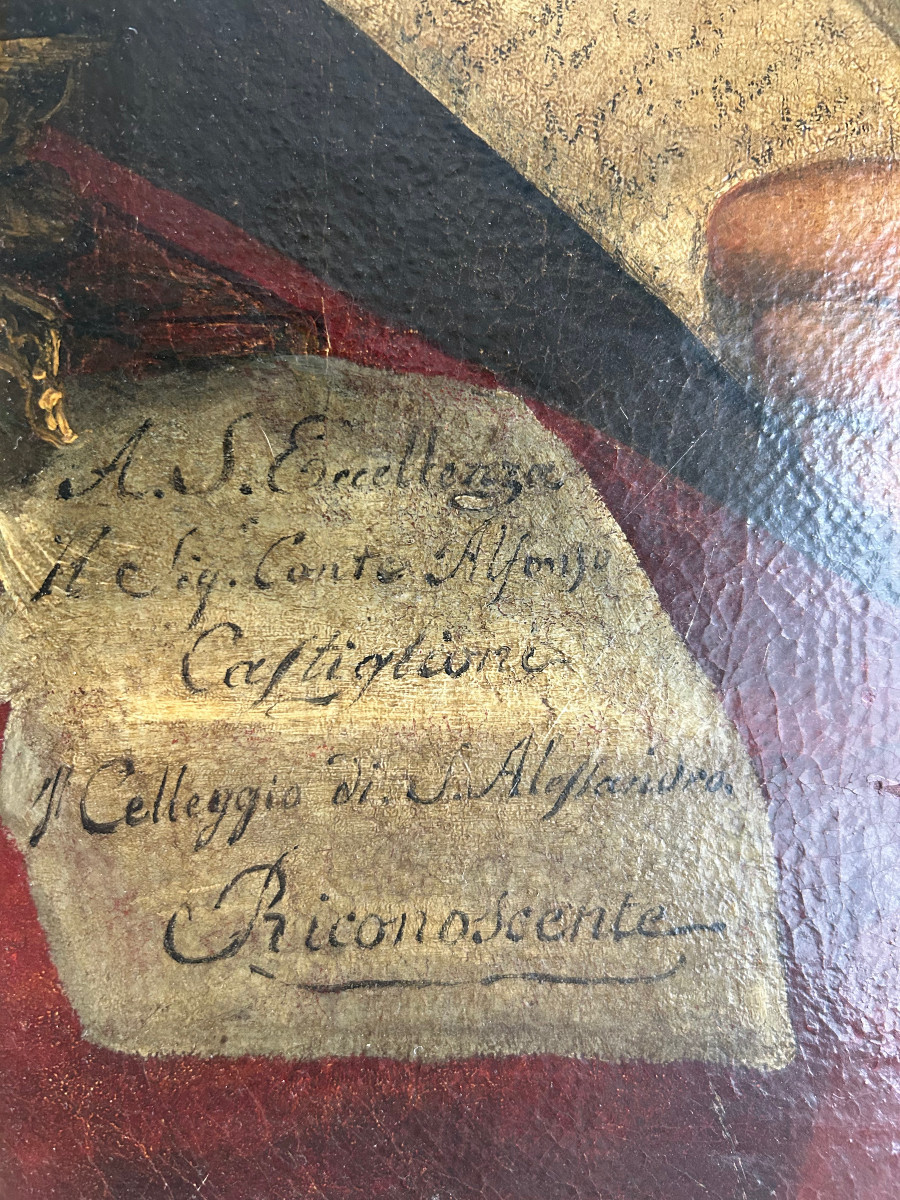 A. S. Eccellenza
Il Sig. Conte Alfonso
Castiglioni
Il Colleggio di S. Alessandro.
Riconoscente